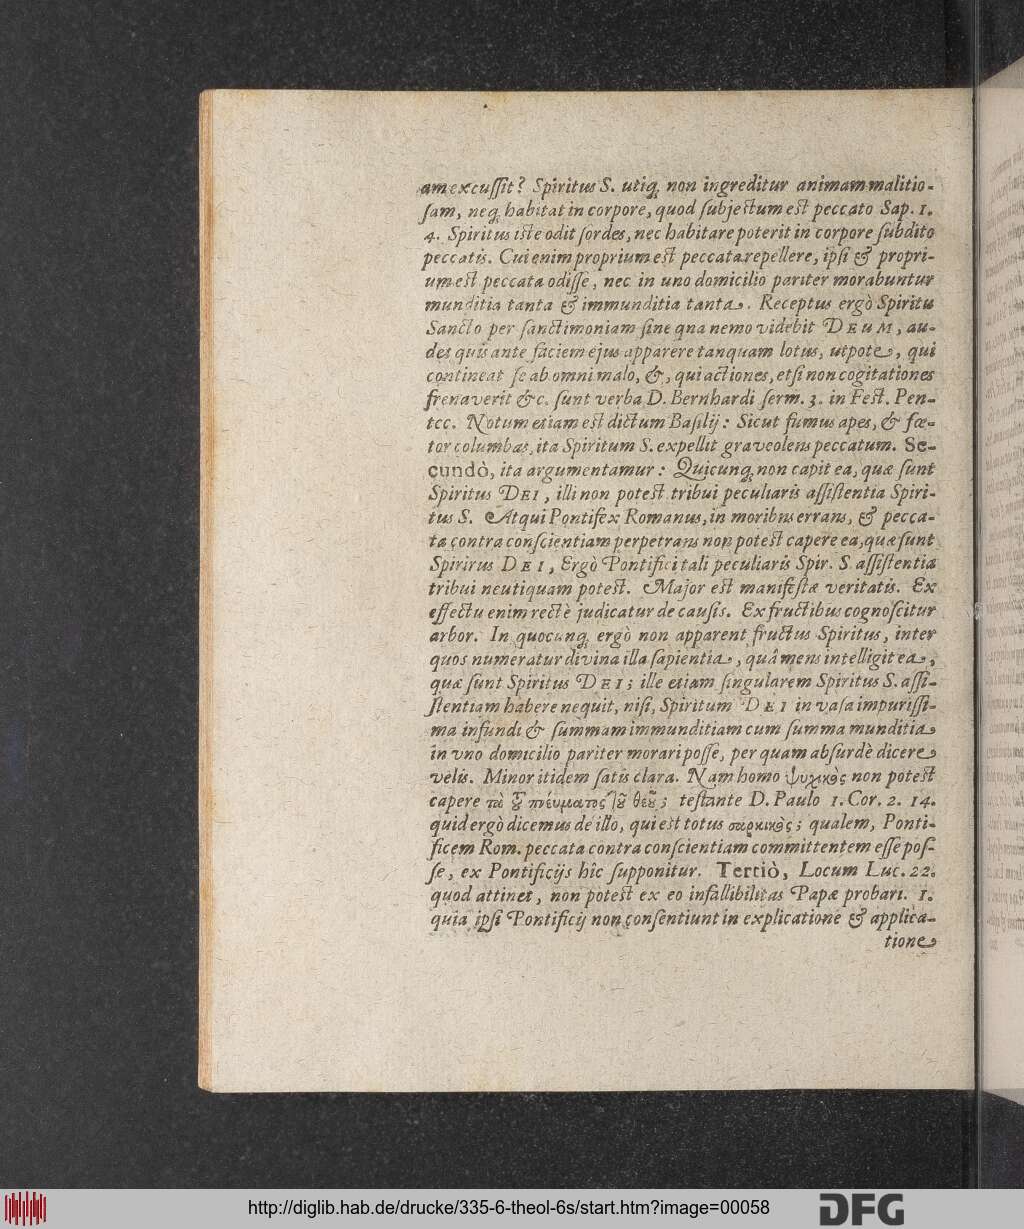 am excuſſit? Spiritus S. utiq; non ingreditur animam malitio-
ſam, neq; habitat in corpore, quod ſubjectum est peccato Sap. 1.
4. Spiritus iste odit ſordes, nec habitare poterit in corpore ſubdito
peccatis. Cui enim proprium est peccata repellere, ipſi & propri-
um est peccata odiſſe, nec in uno domicilio pariter morabuntur
munditia tanta & immunditia tanta. Receptus ergò Spiritu
Sancto per ſanctimoniam ſine qua nemo videbit DEUM, au-
det quis ante faciem ejus apparere tanquam lotus, utpote, qui
contineat ſe ab omni malo, &, qui actiones, etſi non cogitationes
frenaverit &c. ſunt verba D. Bernhardi ſerm. 3. in Fest. Pen-
tec. Notum etiam est dictum Baſilij: Sicut fumus apes, & fœ-
tor columbas, ita Spiritum S. expellit graveolens peccatum. Se-
cundò, ita argumentamur: Quicunq; non capit ea, quæ ſunt
Spiritus DEI, illi non potest tribui peculiaris aſſiſtentia Spiri-
tus S. Atqui Pontifex Romanus, in moribus errans, & pecca-
ta contra conſcientiam perpetrans non potest capere ea, quæ ſunt
Spirirus DEI, Ergò Pontifici tali peculiaris Spir. S. aſſiſtentia
tribui neutiquam potest. Major est manifestæ veritatis. Ex
effectu enim rectè judicatur de causis. Ex fructibus cognoſcitur
arbor. In quocunq; ergò non apparent fructus Spiritus, inter
quos numeratur divina illa ſapientia, quâ mens intelligit ea,
quæ ſunt Spiritus DEI; ille etiam ſingularem Spiritus S. aſſi-
ſtentiam habere nequit, niſi, Spiritum DEI in vaſa impuriſſi-
ma infundi & ſummam immunditiam cum ſumma munditia
in vno domicilio pariter morari poſſe, per quam abſurdè dicere
velis. Minor itidem ſatis clara. Nam homo ψυχικὸς non potest
capere τὰ τȣ͂ πνέυματος τȣ͂ θεȣ͂; teſtante D. Paulo 1. Cor. 2. 14.
quid ergò dicemus de illo, qui est totus σαρκικὸς; qualem, Ponti-
ficem Rom. peccata contra conſcientiam committentem eſſe poſ-
ſe, ex Pontificijs hîc ſupponitur. Tertiò, Locum Luc. 22.
quod attinet, non potest ex eo infallibilitas Papæ probari. 1.
quia ipſi Pontificij non conſentiunt in explicatione & applica-
tione
http://diglib.hab.de/drucke/335-6-theol-6s/start.htm?image=00058
DFG